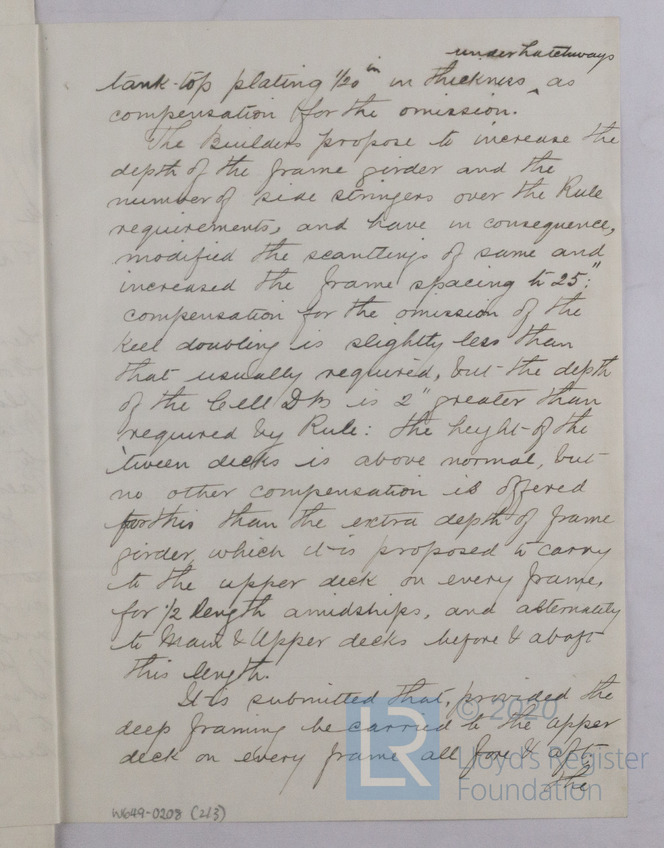 under hatchways
tank-top plating 1/20 in in thickness ^ as
compensation for the omission.
The Builders propose to increase the
depth of the frame girder and the
number of side stringers over the Rule
requirements, and have in consequence,
modified the scantlings of same and
increased the frame spacing to 25":
compensation for the omission of the
keel doubling is slightly less than
that usually required, but the depth
of the Cell DB is 2" greater than
required by Rule: the height of the
'tween decks is above normal, but
no other compensation is offered
for this than the extra depth of frame
girder, which it is proposed to carry
to the upper deck on every frame,
for 1/2 length amidships, and alternately
to Main & Upper decks before & abaft
this length.
It is submitted that, provided the
deep framing be carried to the upper
deck on every frame all fore & aft;
the
W649-0208 (2/3)
LR
© 2020
Lloyd's Register
Foundation